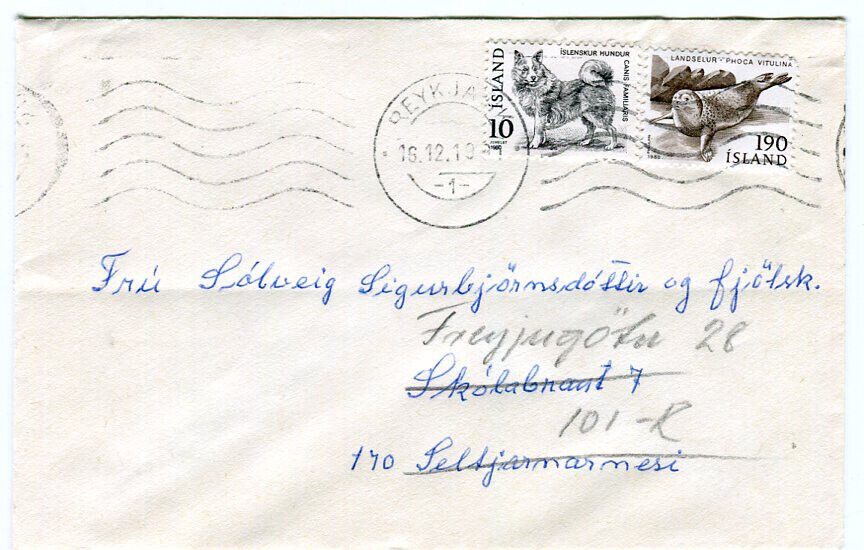 ÍSLENSKUR HUNDUR
CANIS FAMILIARIS
ÍSLAND
10
1980
LANDSELUR - PHOCA VITULINA
190
ÍSLAND
1980
REYKJA
16.12.19
-1-
Frú Sólveig Sigurbjörnsdóttir og fjölsk.
Freyjugötu 28
Skólabraut 7
101-R
170 Seltjarnarnesi